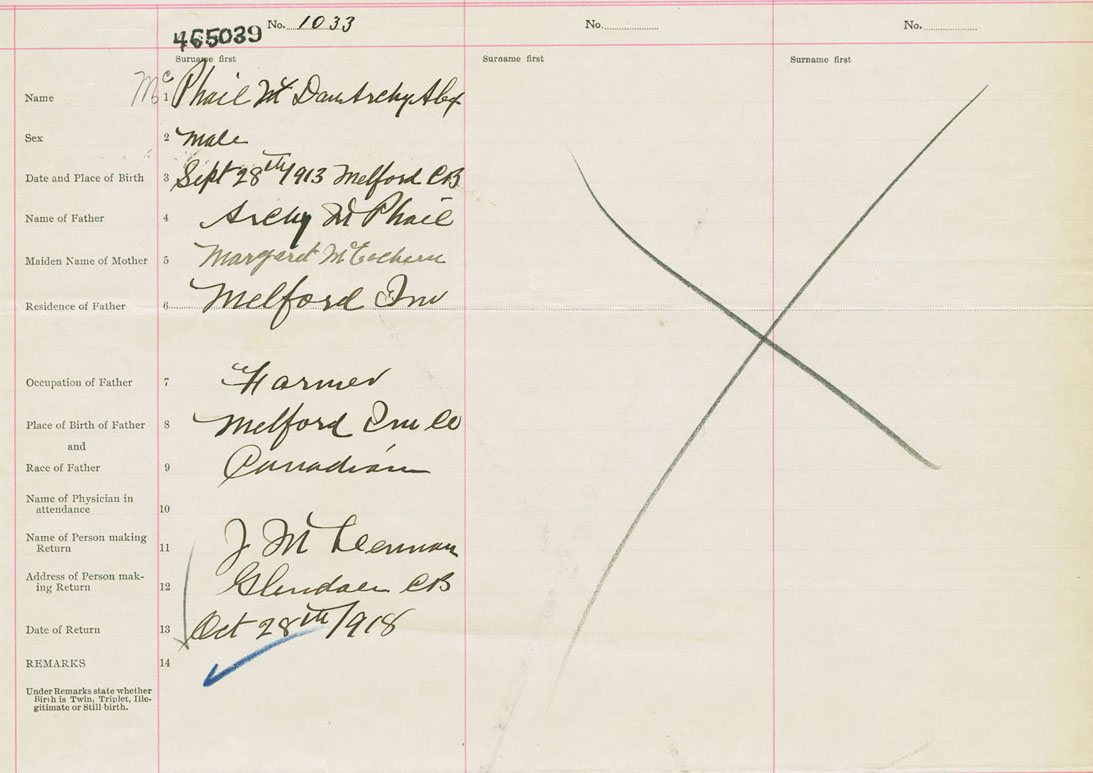 No. 1033
No.
No.
465039
Surname first
Surname first
Surname first
Name 1 Mc Phail Mc Dan Archy Alex
Sex 2 male
Date and Place of Birth 3 Sept 28th/1913 Melford CB
Name of Father 4 Archy Mc Phail
Maiden Name of Mother 5 Margaret McEachern
Residence of Father 6 Melford Inv
Occupation of Father 7 Farmer
Place of Birth of Father 8 Melford Inv Co
and
Race of Father 9 Canadian
Name of Physician in
attendance 10
Name of Person making
Return 11 J McLennan
Address of Person mak-
ing Return 12 Glendale CB
Date of Return 13 Oct 28th/1918
REMARKS 14
Under Remarks state whether
Birth is Twin, Triplet, Ille-
gitimate or Still birth.